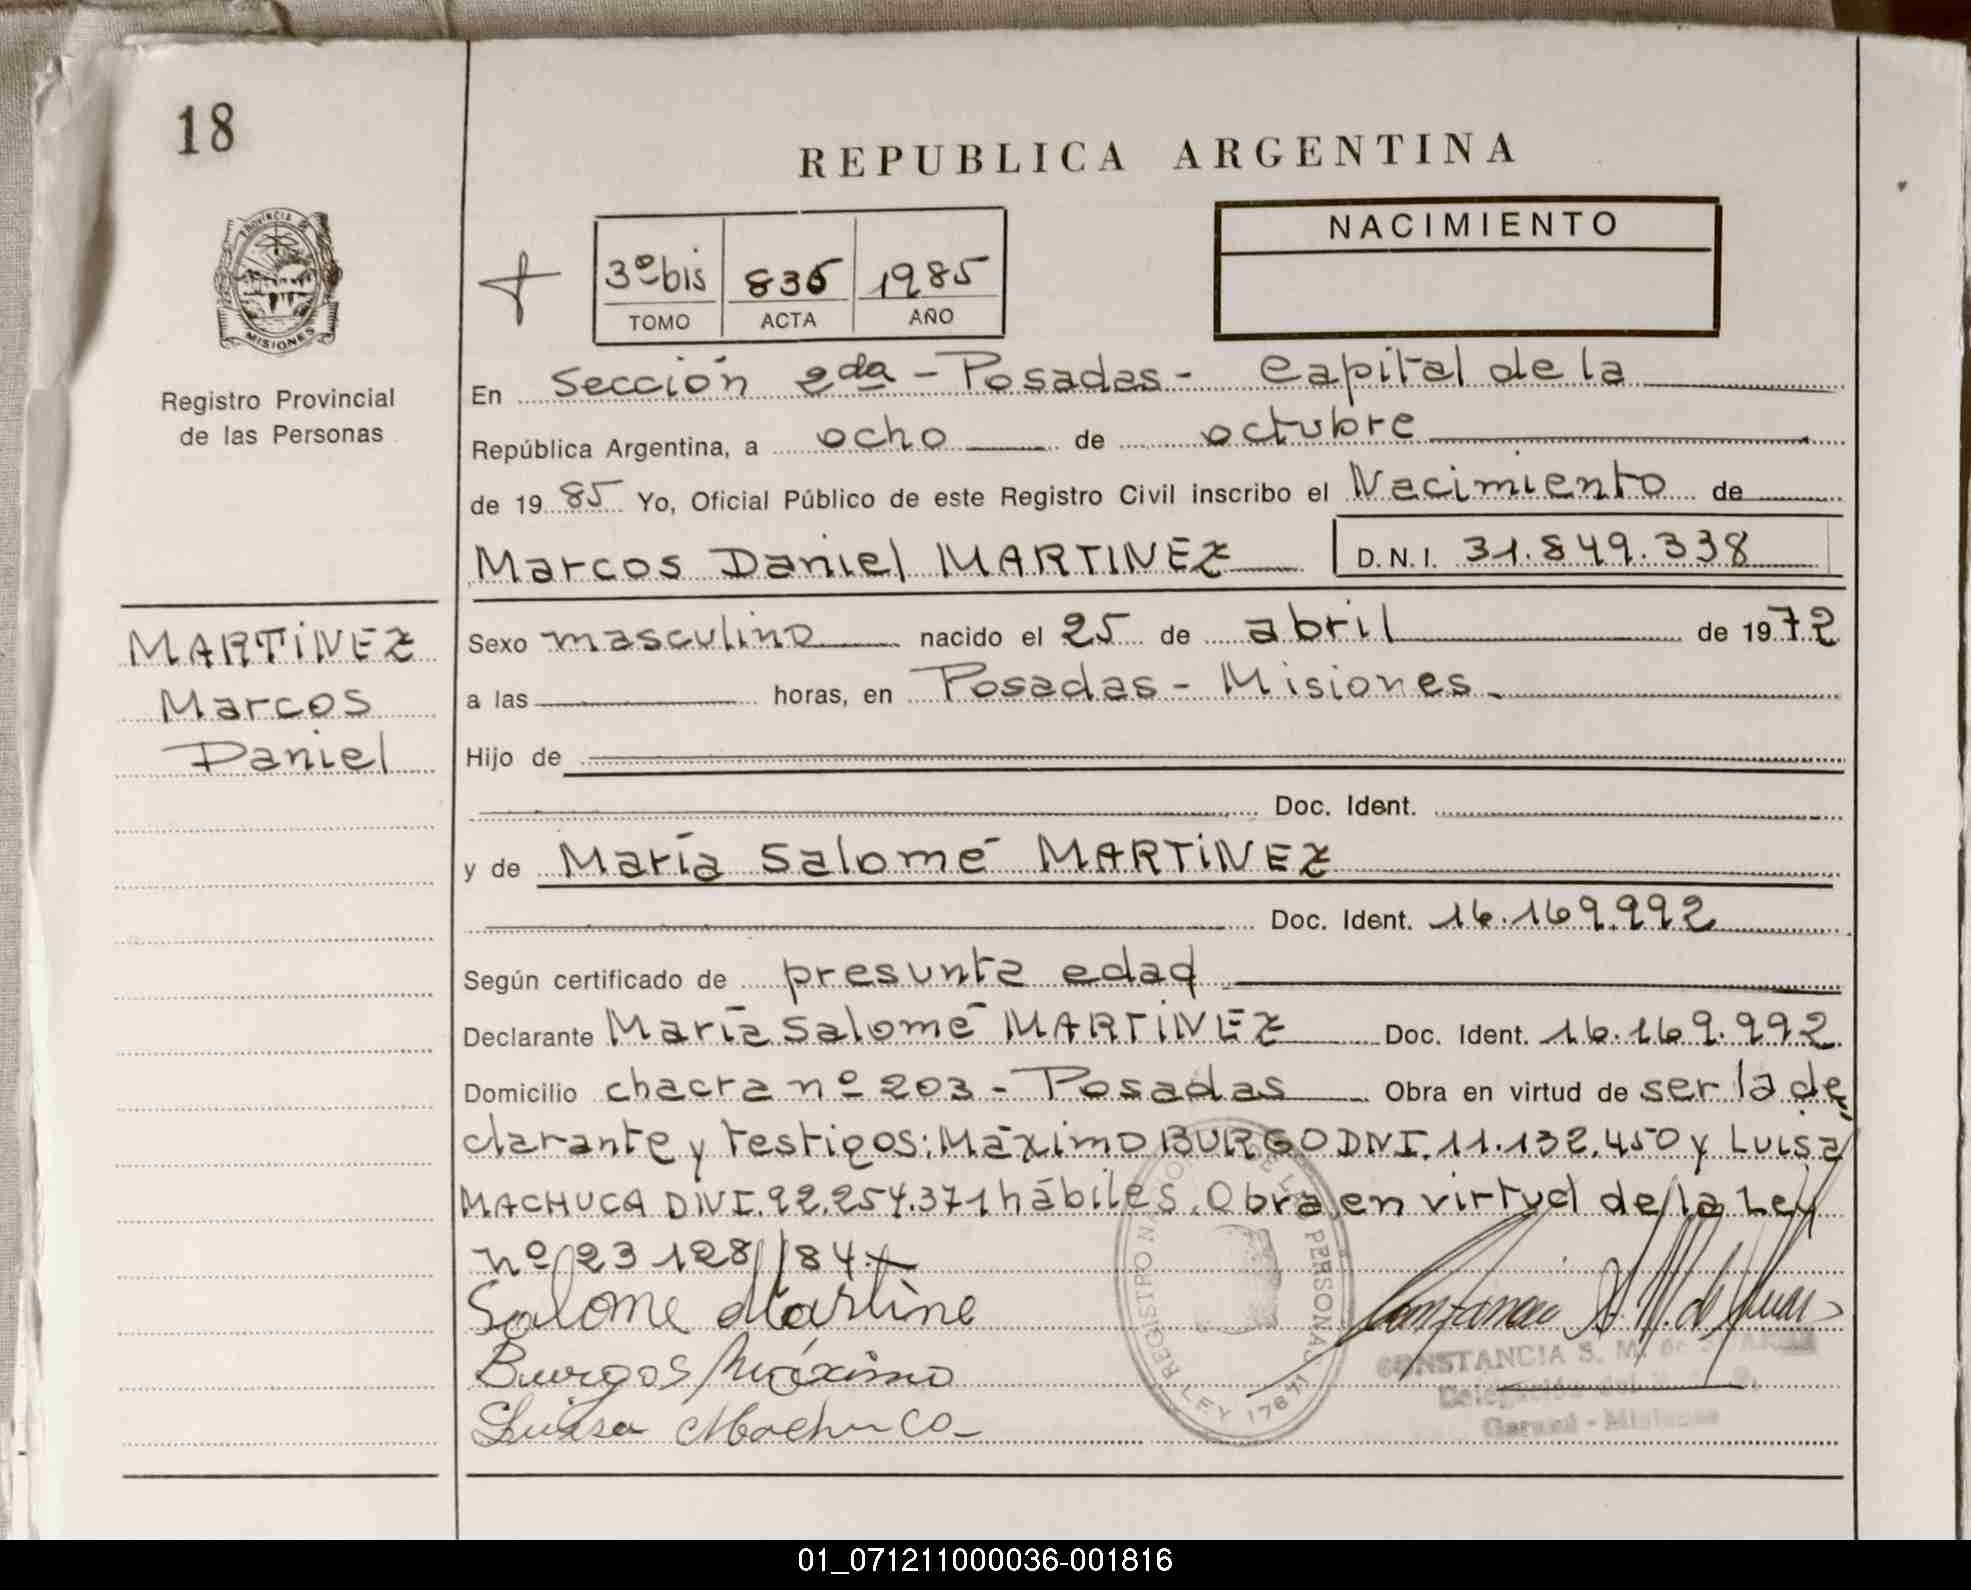 18
REPUBLICA ARGENTINA
NACIMIENTO
3º bis 836 1985
TOMO ACTA AÑO
PROVINCIA DE
MISIONES
Registro Provincial
de las Personas
En Sección 2da - Posadas - Capital de la
República Argentina, a ocho de octubre
de 1985 Yo, Oficial Público de este Registro Civil inscribo el Nacimiento de
Marcos Daniel MARTINEZ D.N.I. 31.849.338
MARTINEZ
Marcos
Daniel
Sexo masculino nacido el 25 de abril de 1972
a las horas, en Posadas - Misiones
Hijo de
Doc. Ident.
y de María Salomé MARTINEZ
Doc. Ident. 16.169.992
Según certificado de presunta edad
Declarante María Salomé MARTINEZ Doc. Ident. 16.169.992
Domicilio chacra nº 203 - Posadas Obra en virtud de ser la de
clarante y testigos: Máximo BURGO DNI. 11.132.450 y Luisa
MACHUCA DNI. 92.254.371 hábiles. Obra en virtud de la Ley
nº 23128/84
Salome Martine
Burgos Máximo
Luisa Machuca
REGISTRO NACIONAL DE LAS PERSONAS
LEY 17671
CONSTANCIA S. M. de
Delegación del
Garupá - Misiones
01_071211000036-001816